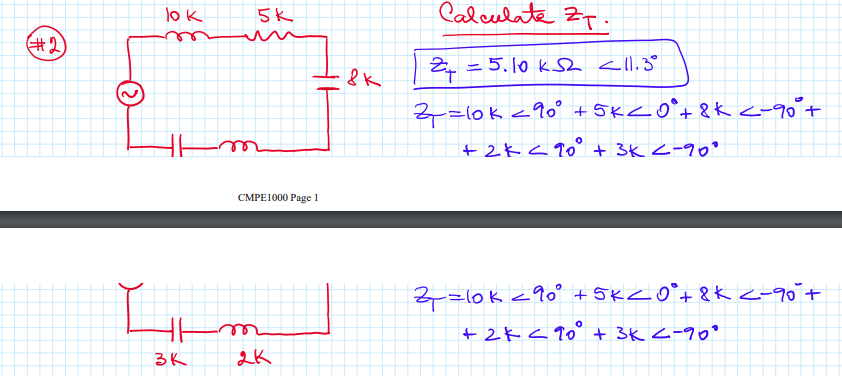 #2
10K 5K
8K
Calculate Z_T.
Z_T = 5.10 KΩ <11.3°
Z_T = 10K <90° + 5K <0° + 8K <-90° +
+ 2K <90° + 3K <-90°
CMPE1000 Page 1
Z_T = 10K <90° + 5K <0° + 8K <-90° +
+ 2K <90° + 3K <-90°
3K 2K